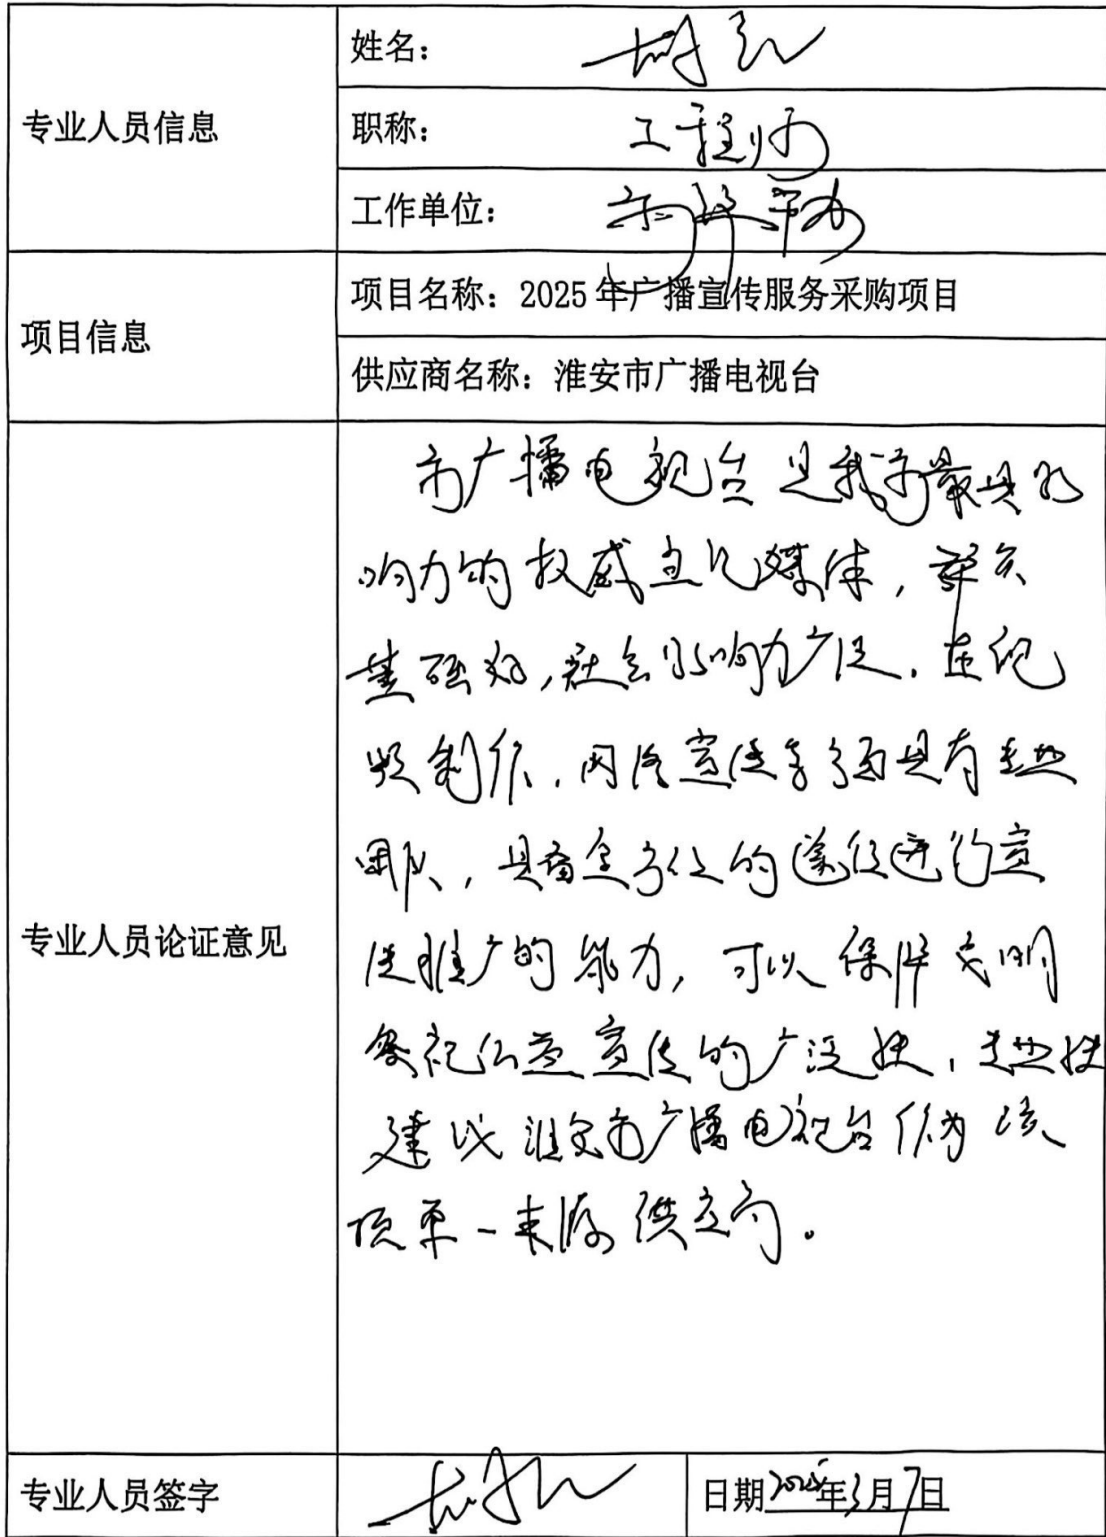 专业人员信息
姓名：
职称： 工程师
工作单位：
项目信息
项目名称：2025 年广播宣传服务采购项目
供应商名称：淮安市广播电视台
专业人员论证意见
市广播电视台是我市最具影
响力的权威主流媒体，群众
基础好，社会影响力广泛。在视
频制作、网络宣传等方面具有专业
团队，具备全方位的途径进行宣
传推广的能力，可以保障文明
祭祀公益宣传的广泛性，专业性
建议淮安市广播电视台作为该
项单一来源供应商。
专业人员签字
日期2025年3月7日